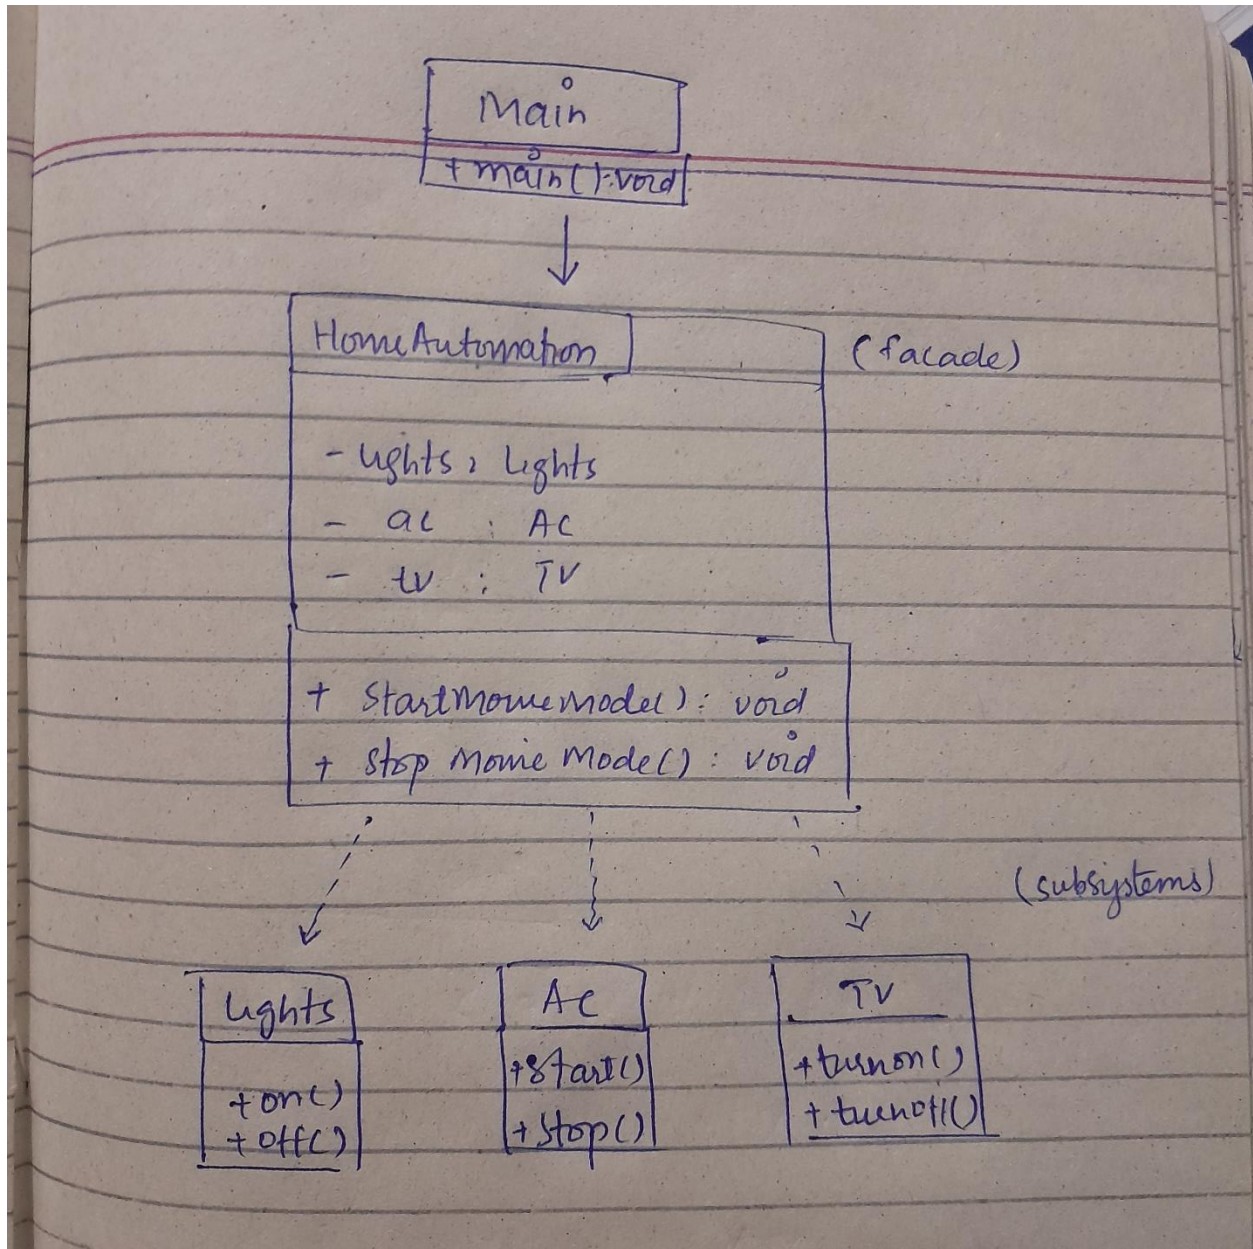 Main
+ main() : void
HomeAutomation
(facade)
- lights : Lights
- ac : AC
- tv : TV
+ StartMovieMode() : void
+ Stop Movie Mode() : void
(subsystems)
Lights
AC
TV
+on()
+off()
+Start()
+Stop()
+turnon()
+turnoff()